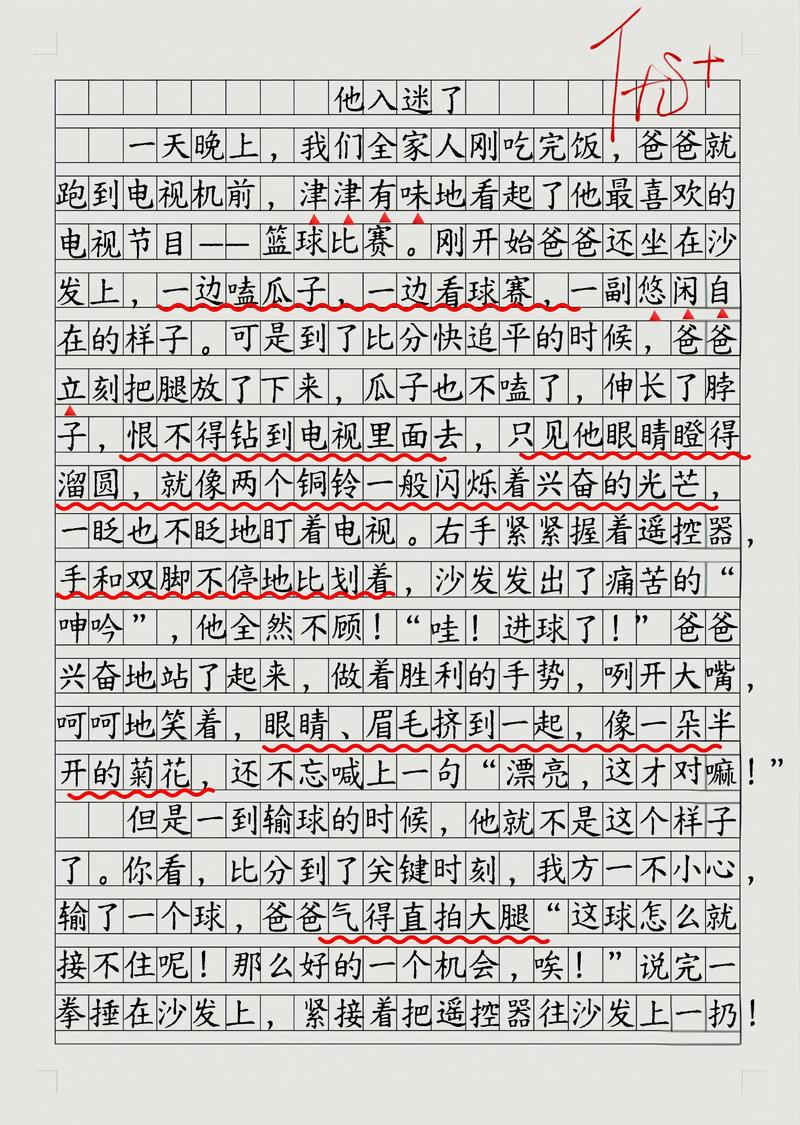 他入迷了
一天晚上，我们全家人刚吃完饭，爸爸就
跑到电视机前，津津有味地看起了他最喜欢的
电视节目——篮球比赛。刚开始爸爸还坐在沙
发上，一边嗑瓜子，一边看球赛，一副悠闲自
在的样子。可是到了比分快追平的时候，爸爸
立刻把腿放了下来，瓜子也不嗑了，伸长了脖
子，恨不得钻到电视里面去，只见他眼睛瞪得
溜圆，就像两个铜铃一般闪烁着兴奋的光芒，
一眨也不眨地盯着电视。右手紧紧握着遥控器，
手和双脚不停地比划着，沙发发出了痛苦的“
呻吟”，他全然不顾！“哇！进球了！”爸爸
兴奋地站了起来，做着胜利的手势，咧开大嘴，
呵呵地笑着，眼睛、眉毛挤到一起，像一朵半
开的菊花，还不忘喊上一句“漂亮，这才对嘛！”
但是一到输球的时候，他就不是这个样子
了。你看，比分到了关键时刻，我方一不小心，
输了一个球，爸爸气得直拍大腿“这球怎么就
接不住呢！那么好的一个机会，唉！”说完一
拳捶在沙发上，紧接着把遥控器往沙发上一扔！